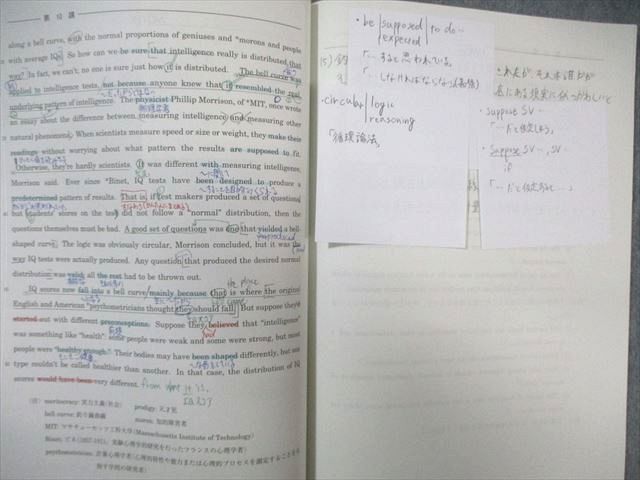 第 10 講
along a bell curve, with the normal proportions of geniuses and *morons and people
with average IQs. So how can we be sure that intelligence really is distributed that
way? In fact, we can't; no one is sure just how it is distributed. The bell curve was
applied to intelligence tests, not because anyone knew that it resembled the real
underlying pattern of intelligence. The physicist Phillip Morrison, of *MIT, once wrote
物理学者
an essay about the difference between measuring intelligence and measuring other
natural phenomena. When scientists measure speed or size or weight, they make their
readings without worrying about what pattern the results are supposed to fit.
Otherwise, they're hardly scientists. It was different with measuring intelligence,
Morrison said. Ever since *Binet, IQ tests have been designed to produce a
predetermined pattern of results. That is, if test makers produced a set of questions
but students' scores on the test did not follow a "normal" distribution, then the
questions themselves must be bad. A good set of questions was one that yielded a bell-
produced
shaped curve. The logic was obviously circular, Morrison concluded, but it was the
way IQ tests were actually produced. Any question that produced the desired normal
distribution was valid; all the rest had to be thrown out.
the place
IQ scores now fall into a bell curve mainly because that is where the original
English and American *psychometricians thought they should fall. But suppose they
started out with different preconceptions. Suppose they believed that "intelligence"
had
was something like "health": some people were weak and some were strong, but most
people were "healthy enough." Their bodies may have been shaped differently, but one
type couldn't be called healthier than another. In that case, the distribution of IQ
scores would have been very different. from what it is.
(注) meritocracy: 実力主義(社会) prodigy: 天才児
bell curve: 釣り鐘曲線 moron: 知的障害者
MIT: マサチューセッツ工科大学(Massachusetts Institute of Technology)
Binet: ビネ(1857-1911, 実験心理学的研究を行ったフランスの心理学者)
psychometrician: 計量心理学者(心理的特性や能力または心理的プロセスを測定することを
指す学問の研究者)
・be supposed to do…
expected
「…すると思われている。
・circular logic
reasoning
「循環論法」
・suppose SV…
「…だと仮定しよう」
・Suppose SV…, SV…
if